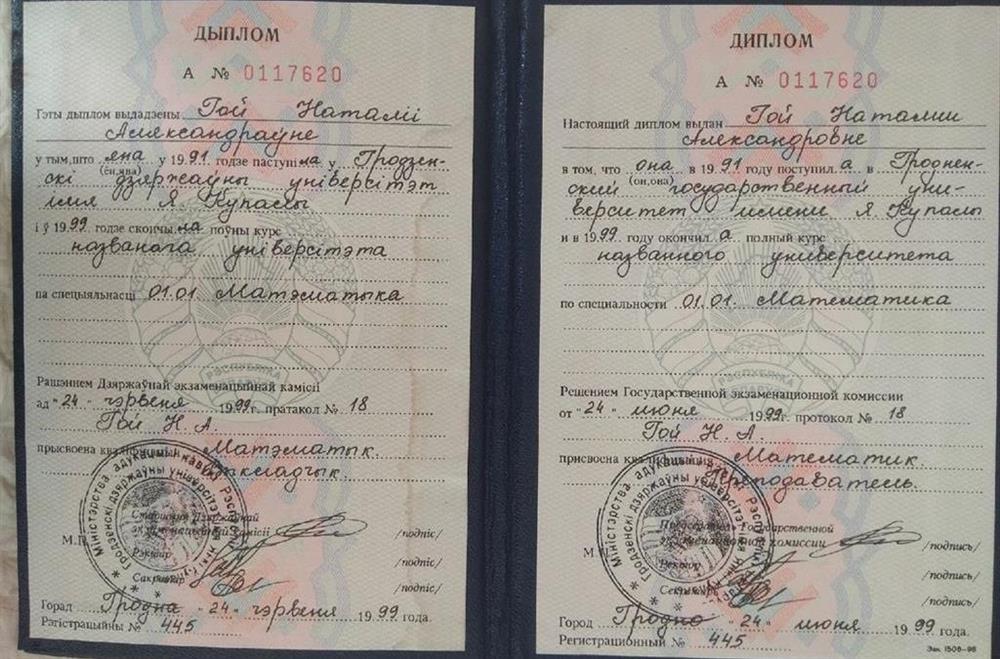 ДЫПЛОМ
А № 0117620
Гэты дыплом выдадзены Гой Наталіі
Аляксандраўне
у тым, што яна у 1991 годзе паступіла у Гродзен-
(ён, яна)
скі дзяржаўны універсітэт
імя Я. Купалы
і ў 1999 годзе скончыла поўны курс
названага універсітэта
па спецыяльнасці 01.01. Матэматыка
РЭСПУБЛІКА БЕЛАРУСЬ
Рашэннем Дзяржаўнай экзаменацыйнай камісіі
ад "24" чэрвеня 1999 г. пратакол № 18
Гой Н. А.
прысвоена кваліфікацыя Матэматык.
Выкладчык.
Старшыня Дзяржаўнай
экзаменацыйнай камісіі /подпіс/
М.П.
Рэктар /подпіс/
Сакратар /подпіс/
Горад Гродна "24" чэрвеня 1999 года.
Рэгістрацыйны № 445
Міністэрства адукацыі і навукі Рэспублікі
Гродзенскі дзяржаўны універсітэт імя Янкі Купалы
ДИПЛОМ
А № 0117620
Настоящий диплом выдан Гой Наталии
Александровне
в том, что она в 1991 году поступила в Гроднен-
(он, она)
ский государственный уни-
верситет имени Я. Купалы
и в 1999 году окончила полный курс
названного университета
по специальности 01.01. Математика
РЭСПУБЛІКА БЕЛАРУСЬ
Решением Государственной экзаменационной комиссии
от "24" июня 1999 г. протокол № 18
Гой Н. А.
присвоена квалификация Математик.
Преподаватель.
Председатель Государственной
экзаменационной комиссии /подпись/
М.П.
Ректор /подпись/
Секретарь /подпись/
Город Гродно "24" июня 1999 года.
Регистрационный № 445
Зак. 1508-98
Міністэрства адукацыі і навукі Рэспублікі
Гродзенскі дзяржаўны універсітэт імя Янкі Купалы